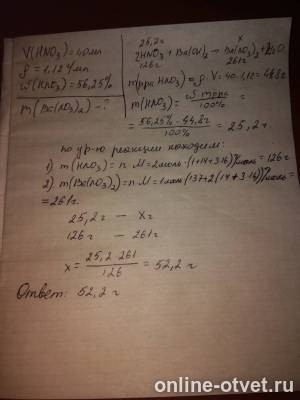 V(HNO₃)=40мл
ρ=1,12г/мл
ω(HNO₃)=56,25%
m(Ba(NO₃)₂)-?
25,2г x
2HNO₃ + Ba(OH)₂ → Ba(NO₃)₂ + 2H₂O
126г 261г
m(рра HNO₃)=ρ·V=40·1,12=44,8г
m(HNO₃)= ω·mрра / 100% =
= 56,25%·44,8г / 100% = 25,2г
по ур-ю реакции находим:
1) m(HNO₃)=n·M=2моль·(1+14+3·16)г/моль=126г
2) m(Ba(NO₃)₂)=n·M=1моль(137+2(14+3·16))г/моль=
=261г.
25,2г — xг
126г — 261г
x = 25,2·261 / 126 = 52,2г
Ответ: 52,2г
online-otvet.ru